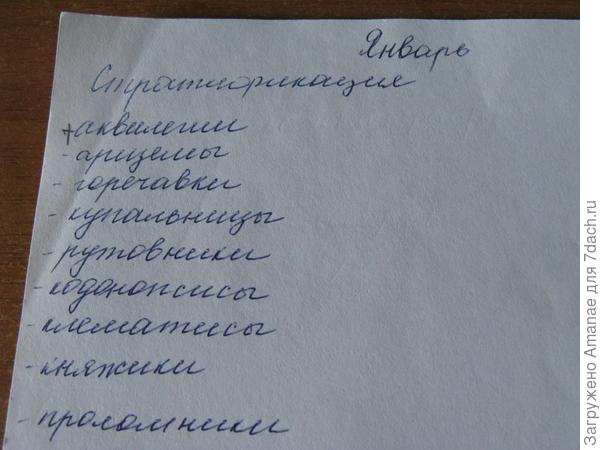 Январь
Стратификация
+ аквилегии
- арицемы
- горечавки
- купальницы
- рутовники
- кодонопсисы
- клематисы
- княжики
- проломники
Загружено Amanae для 7dach.ru